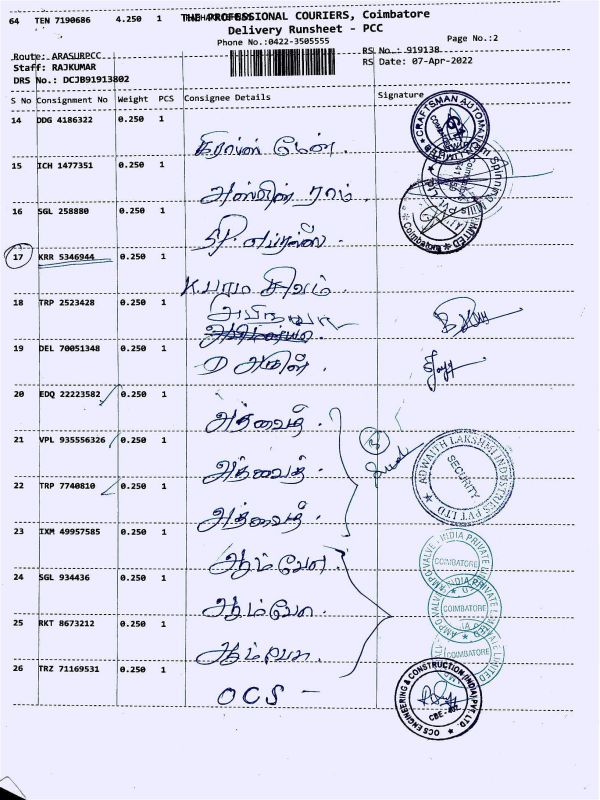 64 TEN 7190686 4.250 1
THE PROFESSIONAL COURIERS, Coimbatore
Delivery Runsheet - PCC
Phone No.:0422-3505555 Page No.:2
Route: ARASURPCC RS No.: 919138
Staff: RAJKUMAR RS Date: 07-Apr-2022
DRS No.: DCJB91913802
S No Consignment No Weight PCS Consignee Details Signature
14 DDG 4186322 0.250 1
CRAFTSMAN AUTOMATI
15 ICH 1477351 0.250 1
Spinning Mills
அஸ்வின் ராம்
16 SGL 258880 0.250 1
LIMITED Coimbatore
17 KRR 5346944 0.250 1
K. பரம சிவம்
18 TRP 2523428 0.250 1
19 DEL 70051348 0.250 1
20 EDQ 22223582 0.250 1
அத்வைத் .
21 VPL 935556326 0.250 1
ADWAITH LAKSHMI INDUSTRIES PVT LTD
SECURITY
அத்வைத் .
22 TRP 7740810 0.250 1
அத்வைத் .
23 IXM 49957585 0.250 1
AMPO VALVE INDIA PRIVATE
COIMBATORE
24 SGL 934436 0.250 1
AMPO VALVE INDIA PRIVATE LIMITED
COIMBATORE
25 RKT 8673212 0.250 1
COIMBATORE
26 TRZ 71169531 0.250 1
OCS -
OCS ENGINEERING & CONSTRUCTION (INDIA) PVT. LTD.